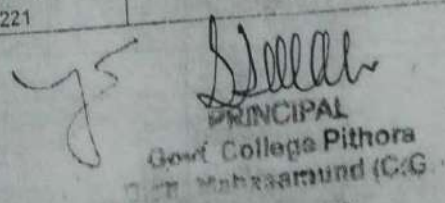 221
PRINCIPAL
Govt College Pithora
Mahasamund (C.G